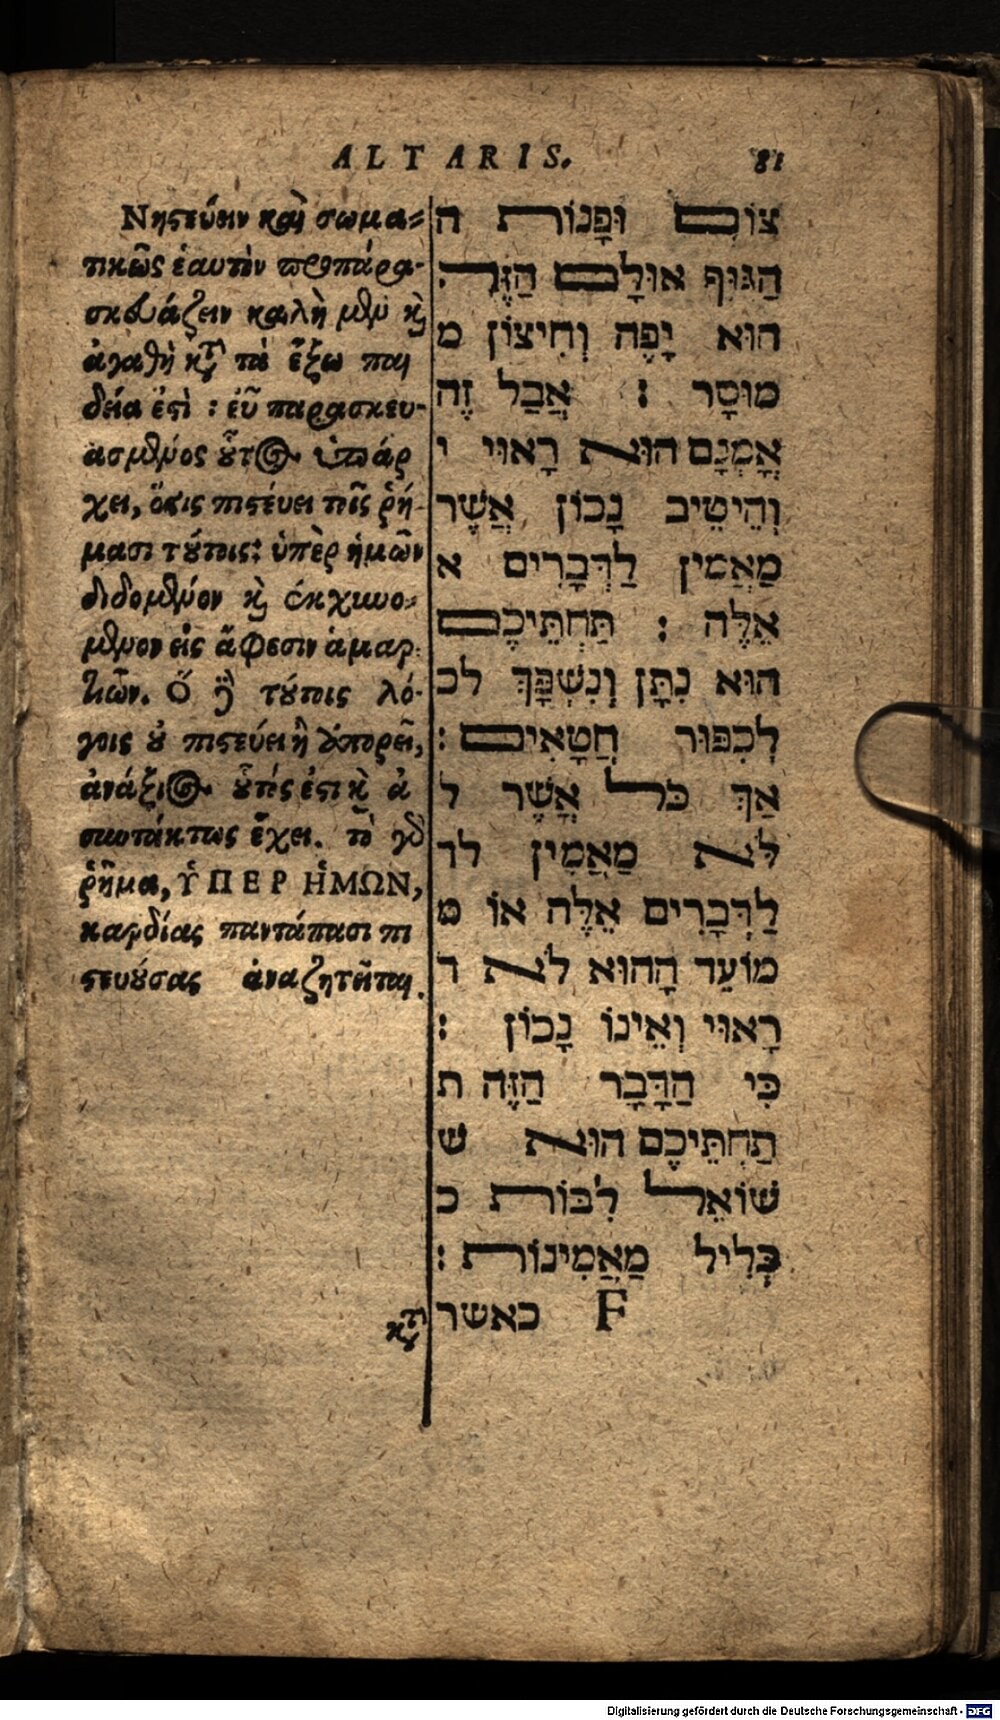 ALTARIS. 81
Νηϛεύειν καὶ σωμα-
τικῶς ἑαυτὸν προπαρα-
σκευάζειν καλὴ μὲν κὶ
ἀγαθὴ κατὰ τὰ ἔξω παι
δεία ἐϛὶ : εὖ παρασκευ-
ασμένος οὗτος ὑπάρ
χει, ὅϛις πιϛεύει τοῖς ῥή-
μασι τούτοις: ὑπὲρ ἡμῶν
διδομένον κὶ ἐκχυνό-
μενον εἰς ἄφεσιν ἁμαρ-
τιῶν. Ὁ δὲ τούτοις λό-
γοις οὐ πιϛεύει ἢ ἀπορεῖ,
ἀνάξιος οὗτός ἐϛι κὶ ἀ
συντάκτως ἔχει. τὸ γὰρ
ῥῆμα, ὙΠΕΡ ἩΜΩΝ,
καρδίας παντάπασι πι
ϛευούσας ἀναζητεῖται.
κατὰ
צוֹם וּפָנוֹת ה
הַגּוּף אוּלָם הַזֶּה
הוּא יָפֶה וְחִיצוֹן מ
מוּסָר : אֲבָל זֶה
אֳמְנָם הוּא רָאוּי י
וְהֵיטִיב נָכוֹן אֲשֶׁר
מַאֲמִין לַדְּבָרִים א
אֵלֶּה : תַּחְתֵּיכֶם
הוּא נִתָּן וְנִשְׁפָּךְ לכ
לְכִפּוּר חֲטָאִים :
אַךְ כֹּל אֲשֶׁר ל
לֹא מַאֲמִין לד
לַדְּבָרִים אֵלֶּה אוֹ מ
מוֹעֵד הַהוּא לֹא ר
רָאוּי וְאֵינוֹ נָכוֹן :
כִּי הַדָּבָר הַזֶּה ת
תַּחְתֵּיכֶם הוּא ש
שׁוֹאֵל לִבּוֹת כ
כְּלִיל מַאֲמִינוֹת :
F כאשר
Digitalisierung gefördert durch die Deutsche Forschungsgemeinschaft - DFG